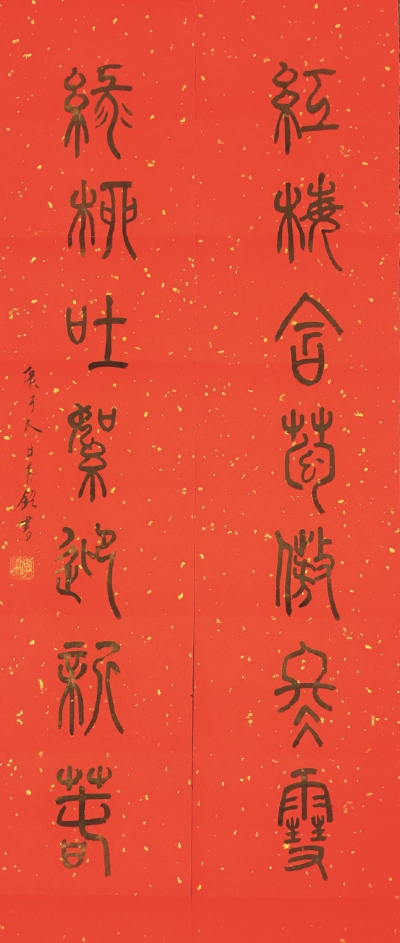 紅梅含苞傲冬雪
綠柳吐絮迎新春
庚子冬月
書